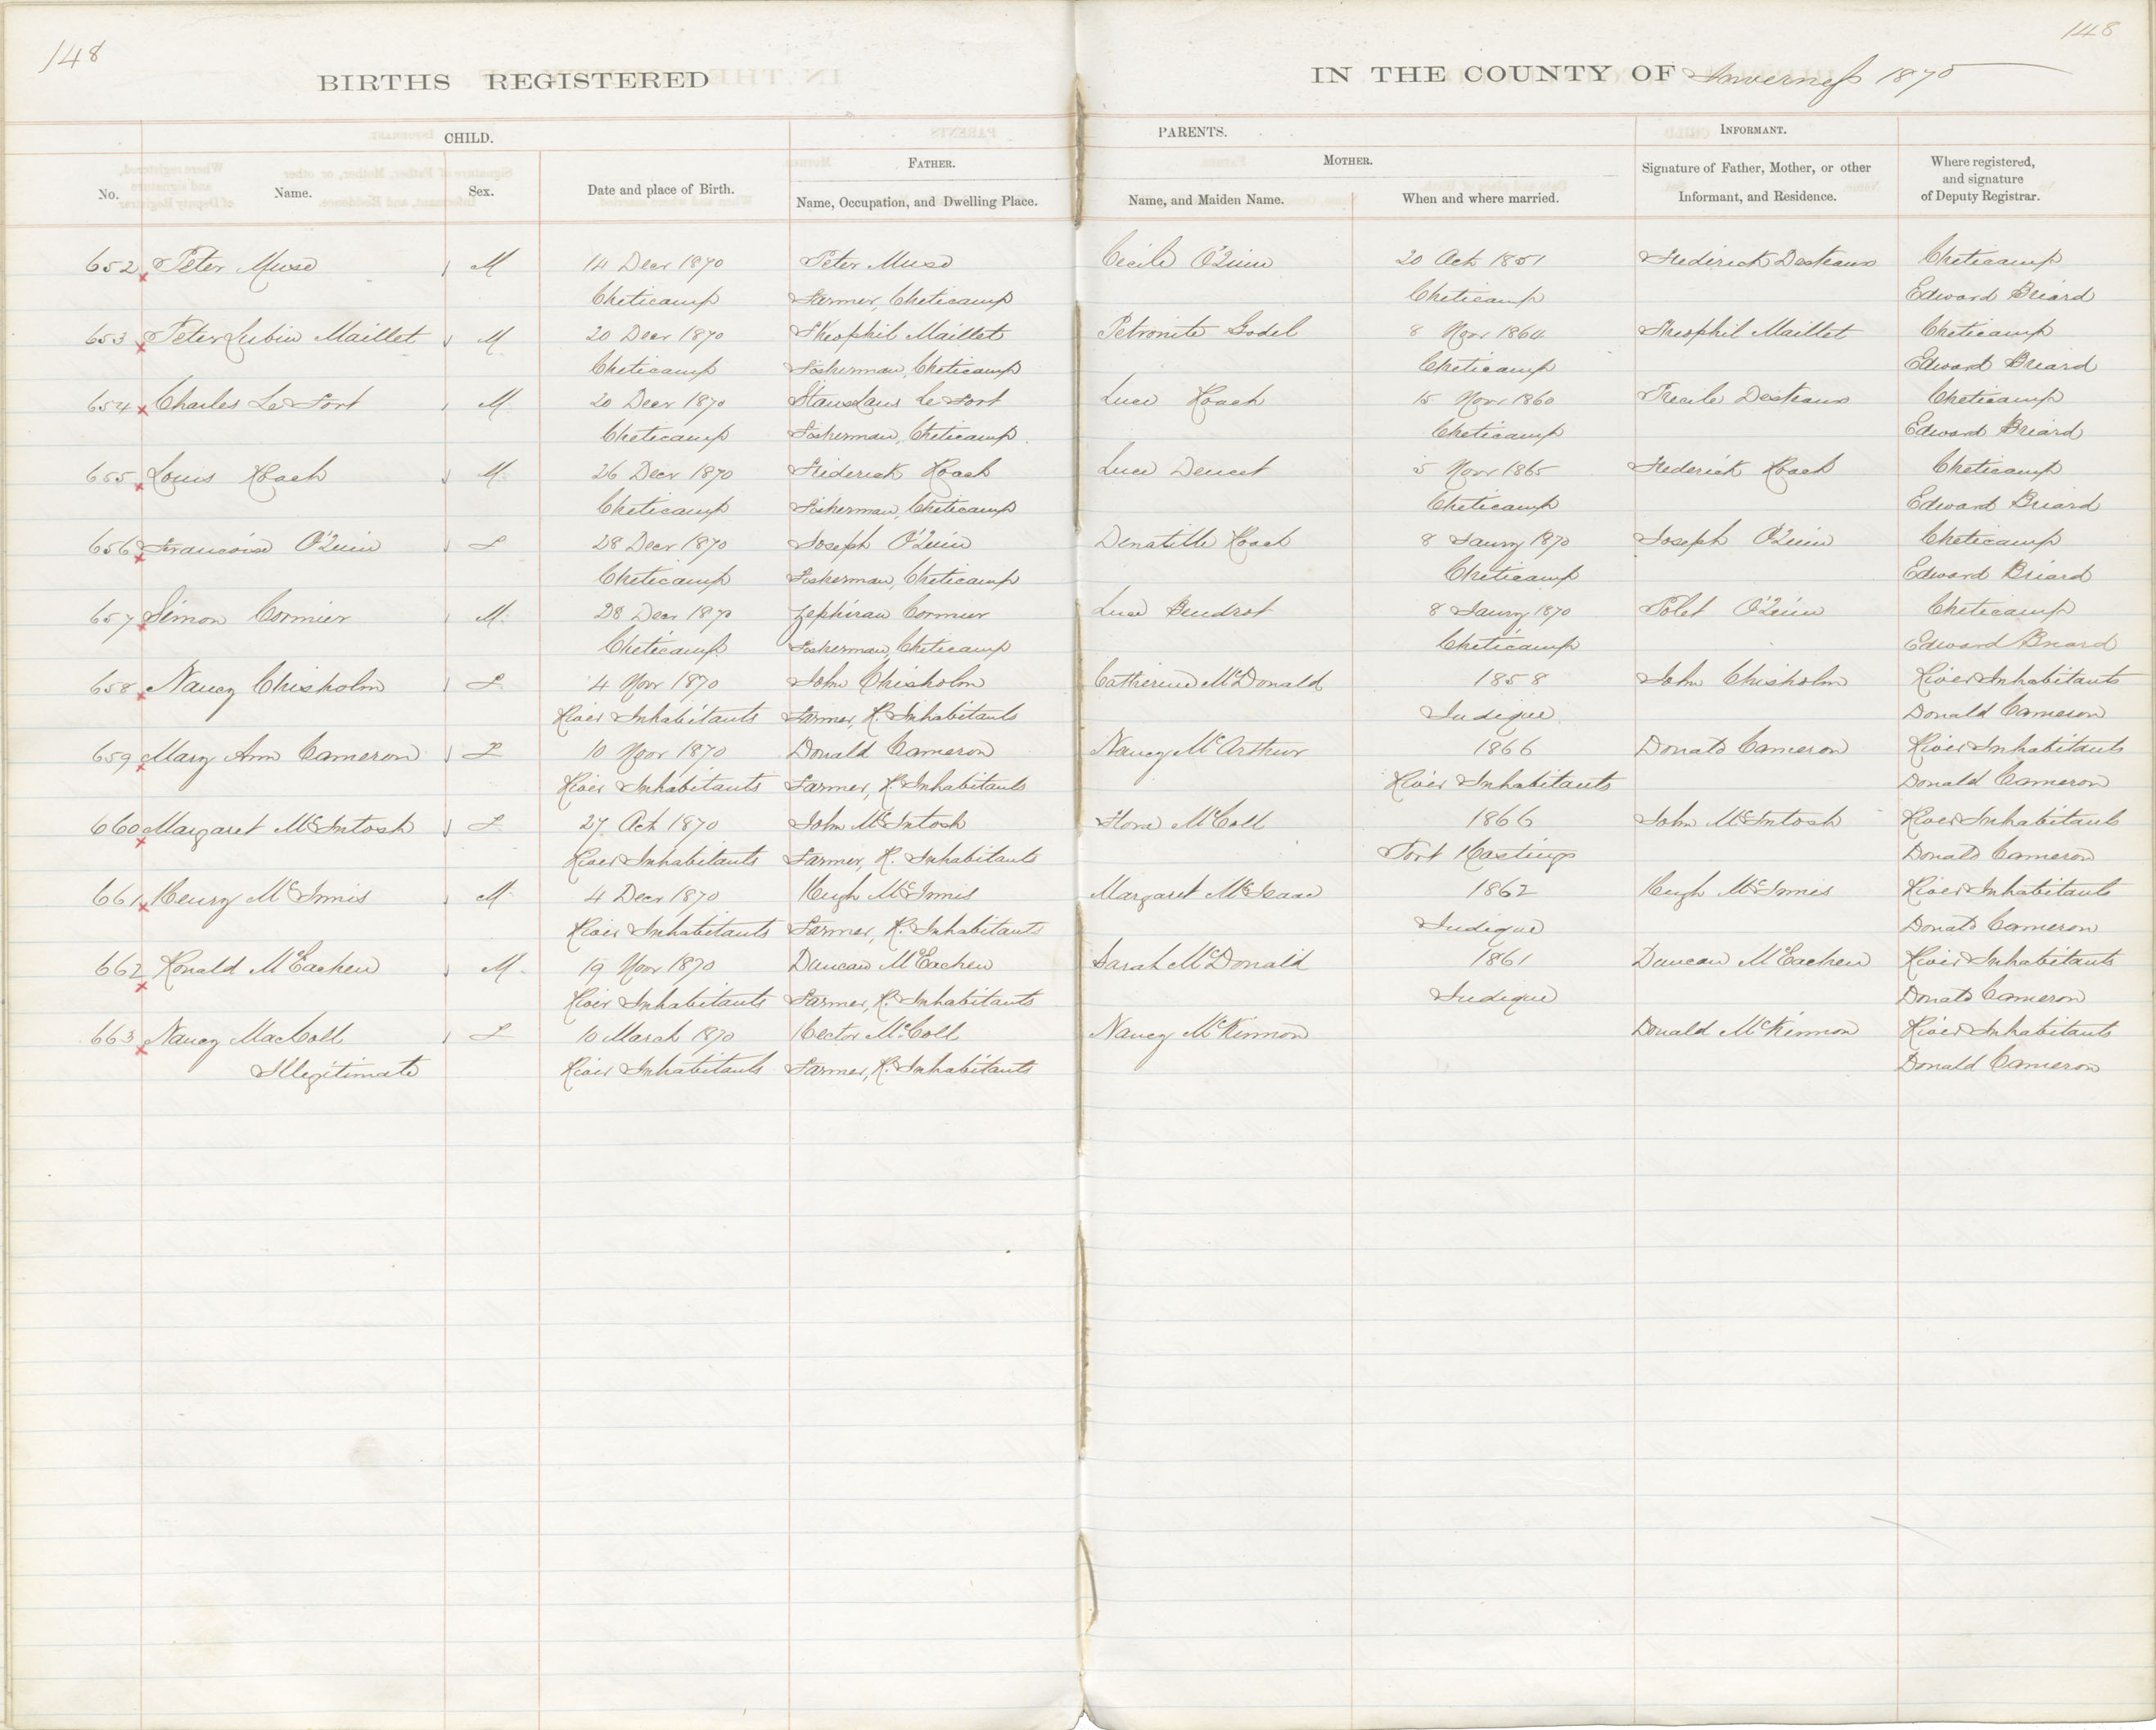 148
148
BIRTHS REGISTERED
IN THE COUNTY OF Inverness 1870
CHILD.
PARENTS.
INFORMANT.
FATHER.
MOTHER.
No.
Name.
Sex.
Date and place of Birth.
Name, Occupation, and Dwelling Place.
Name, and Maiden Name.
When and where married.
Signature of Father, Mother, or other
Informant, and Residence.
Where registered,
and signature
of Deputy Registrar.
652 Peter Muse M 14 Decr 1870 Peter Muse Cecile O'Quin 20 Oct 1851 Frederick Desteaux Cheticamp
Cheticamp Farmer, Cheticamp Cheticamp Edward Briard
653 Peter Lubin Maillet M 20 Decr 1870 Theophil Maillet Petronite Godel 8 Novr 1864 Theophil Maillet Cheticamp
Cheticamp Fisherman, Cheticamp Cheticamp Edward Briard
654 Charles LeFort M 20 Decr 1870 Stanislaus LeFort Luce Roach 15 Novr 1860 Desteaux Cheticamp
Cheticamp Fisherman, Cheticamp. Cheticamp Edward Briard
655 Louis Roach M. 26 Decr 1870 Frederick Roach Luce Doucet 5 Novr 1865 Frederick Roach Cheticamp
Cheticamp Fisherman, Cheticamp Cheticamp Edward Briard
656 Francoise O'Quin F 28 Decr 1870 Joseph O'Quin Roach 8 Jaury 1870 Joseph O'Quin Cheticamp
Cheticamp Fisherman, Cheticamp Cheticamp Edward Briard
657 Simon Cormier M. 28 Decr 1870 Zephiran Cormier Luce Boudrot 8 Jaury 1870 Polet O'Quin Cheticamp
Cheticamp Fisherman, Cheticamp Cheticamp Edward Briard
658 Nancy Chisholm F. 4 Novr 1870 John Chisholm Catherine McDonald 1858 John Chisholm River Inhabitants
River Inhabitants Farmer, R. Inhabitants Judique Donald Cameron
659 Mary Ann Cameron F 10 Novr 1870 Donald Cameron Nancy McArthur 1866 Donald Cameron River Inhabitants
River Inhabitants Farmer, R. Inhabitants River Inhabitants Donald Cameron
660 Margaret McIntosh F. 27 Oct 1870 John McIntosh Flora McColl 1866 John McIntosh River Inhabitants
River Inhabitants Farmer, R. Inhabitants Port Hastings Donald Cameron
661 Henry McInnis M. 4 Decr 1870 Hugh McInnis Margaret McIsaac 1862 Hugh McInnis River Inhabitants
River Inhabitants Farmer, R. Inhabitants Judique Donald Cameron
662 Ronald McEachen M. 19 Novr 1870 Duncan McEachen Sarah McDonald 1861 Duncan McEachen River Inhabitants
River Inhabitants Farmer, R. Inhabitants Judique Donald Cameron
663 Nancy MacColl F 10 March 1870 Hector McColl Nancy McKinnon Donald McKinnon River Inhabitants
Illegitimate River Inhabitants Farmer, R. Inhabitants Donald Cameron